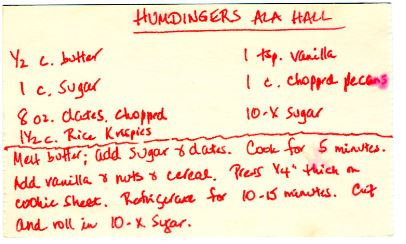 HUMDINGERS ALA HALL
1/2 c. butter
1 tsp. vanilla
1 c. Sugar
1 c. chopped pecans
8 oz. dates, chopped
10-X Sugar
1 1/2 c. Rice Krispies
Melt butter; add sugar & dates. Cook for 5 minutes.
Add vanilla & nuts & cereal. Press 1/4" thick on
cookie sheet. Refrigerate for 10-15 minutes. Cut
and roll in 10-X Sugar.